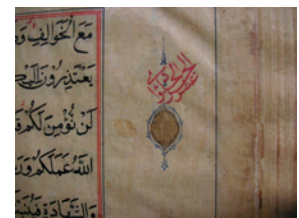 مَعَ الْخَوَالِفِ وَ
يَعْتَذِرُونَ إِلَيْكُ
لَنْ نُؤْمِنَ لَكُمْ قَ
اللَّهُ عَمَلَكُمْ وَرَ
وَالشَّهَادَةِ فَيُنَبِّ